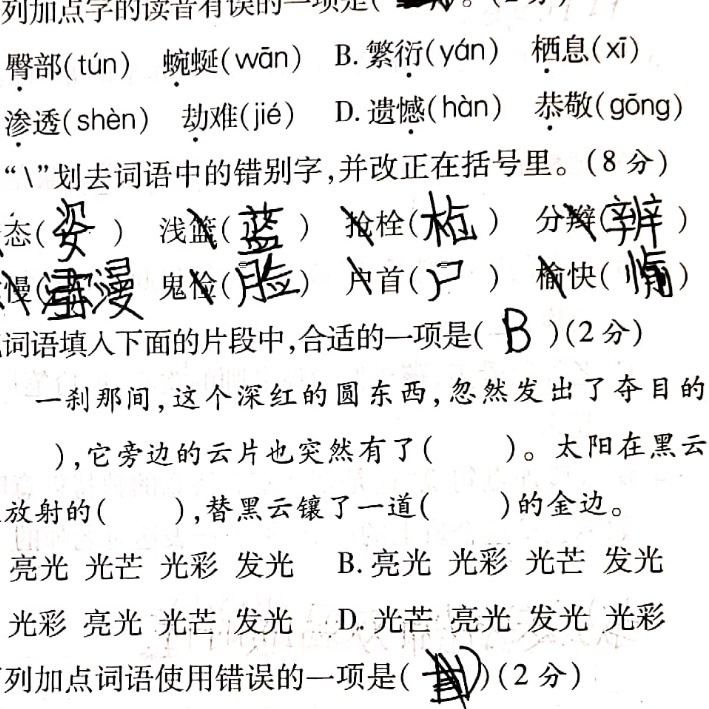 列加点字的读音有误的一项是( )。(2分)
臀部(tún) 蜿蜒(wān) B.繁衍(yán) 栖息(xī)
渗透(shèn) 劫难(jié) D.遗憾(hàn) 恭敬(gōng)
“\”划去词语中的错别字,并改正在括号里。(8分)
态(姿) 浅篮(蓝) 抢栓( ) 分辩(辨)
慢(漫) 鬼俭(脸) 户首(尸) 榆快(愉)
词语填入下面的片段中,合适的一项是( B )(2分)
一刹那间,这个深红的圆东西,忽然发出了夺目的
),它旁边的云片也突然有了( )。太阳在黑云
放射的( ),替黑云镶了一道( )的金边。
亮光 光芒 光彩 发光 B.亮光 光彩 光芒 发光
光彩 亮光 光芒 发光 D.光芒 亮光 发光 光彩
列加点词语使用错误的一项是( )(2分)